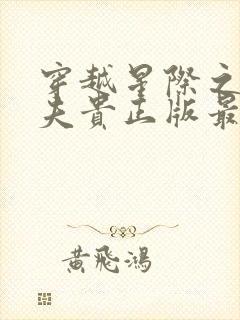 穿越星際之
夫貴正版最
黃飛鴻